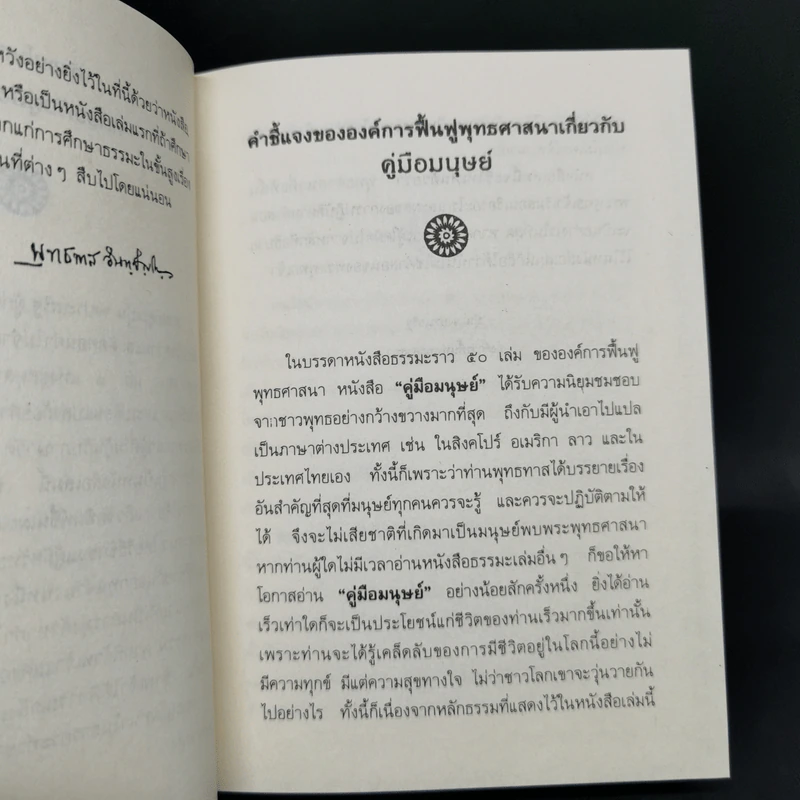 หวังอย่างยิ่งไว้ในที่นี้ด้วยว่าหนังสือ
หรือเป็นหนังสือเล่มแรกที่ถ้าศึกษา
แก่การศึกษาธรรมะในชั้นสูงเรื่อง
ที่ต่างๆ สืบไปโดยแน่นอน
พุทธทาส อินทปัญโญ
คำชี้แจงขององค์การฟื้นฟูพุทธศาสนาเกี่ยวกับ
คู่มือมนุษย์
ในบรรดาหนังสือธรรมะราว ๕๐ เล่ม ขององค์การฟื้นฟู
พุทธศาสนา หนังสือ “คู่มือมนุษย์” ได้รับความนิยมชมชอบ
จากชาวพุทธอย่างกว้างขวางมากที่สุด ถึงกับมีผู้นำเอาไปแปล
เป็นภาษาต่างประเทศ เช่น ในสิงคโปร์ อเมริกา ลาว และใน
ประเทศไทยเอง ทั้งนี้ก็เพราะว่าท่านพุทธทาสได้บรรยายเรื่อง
อันสำคัญที่สุดที่มนุษย์ทุกคนควรจะรู้ และควรจะปฏิบัติตามให้
ได้ จึงจะไม่เสียชาติที่เกิดมาเป็นมนุษย์พบพระพุทธศาสนา
หากท่านผู้ใดไม่มีเวลาอ่านหนังสือธรรมะเล่มอื่นๆ ก็ขอให้หา
โอกาสอ่าน “คู่มือมนุษย์” อย่างน้อยสักครั้งหนึ่ง ยิ่งได้อ่าน
เร็วเท่าใดก็จะเป็นประโยชน์แก่ชีวิตของท่านเร็วมากขึ้นเท่านั้น
เพราะท่านจะได้รู้เคล็ดลับของการมีชีวิตอยู่ในโลกนี้อย่างไม่
มีความทุกข์ มีแต่ความสุขทางใจ ไม่ว่าชาวโลกเขาจะวุ่นวายกัน
ไปอย่างไร ทั้งนี้ก็เนื่องจากหลักธรรมที่แสดงไว้ในหนังสือเล่มนี้